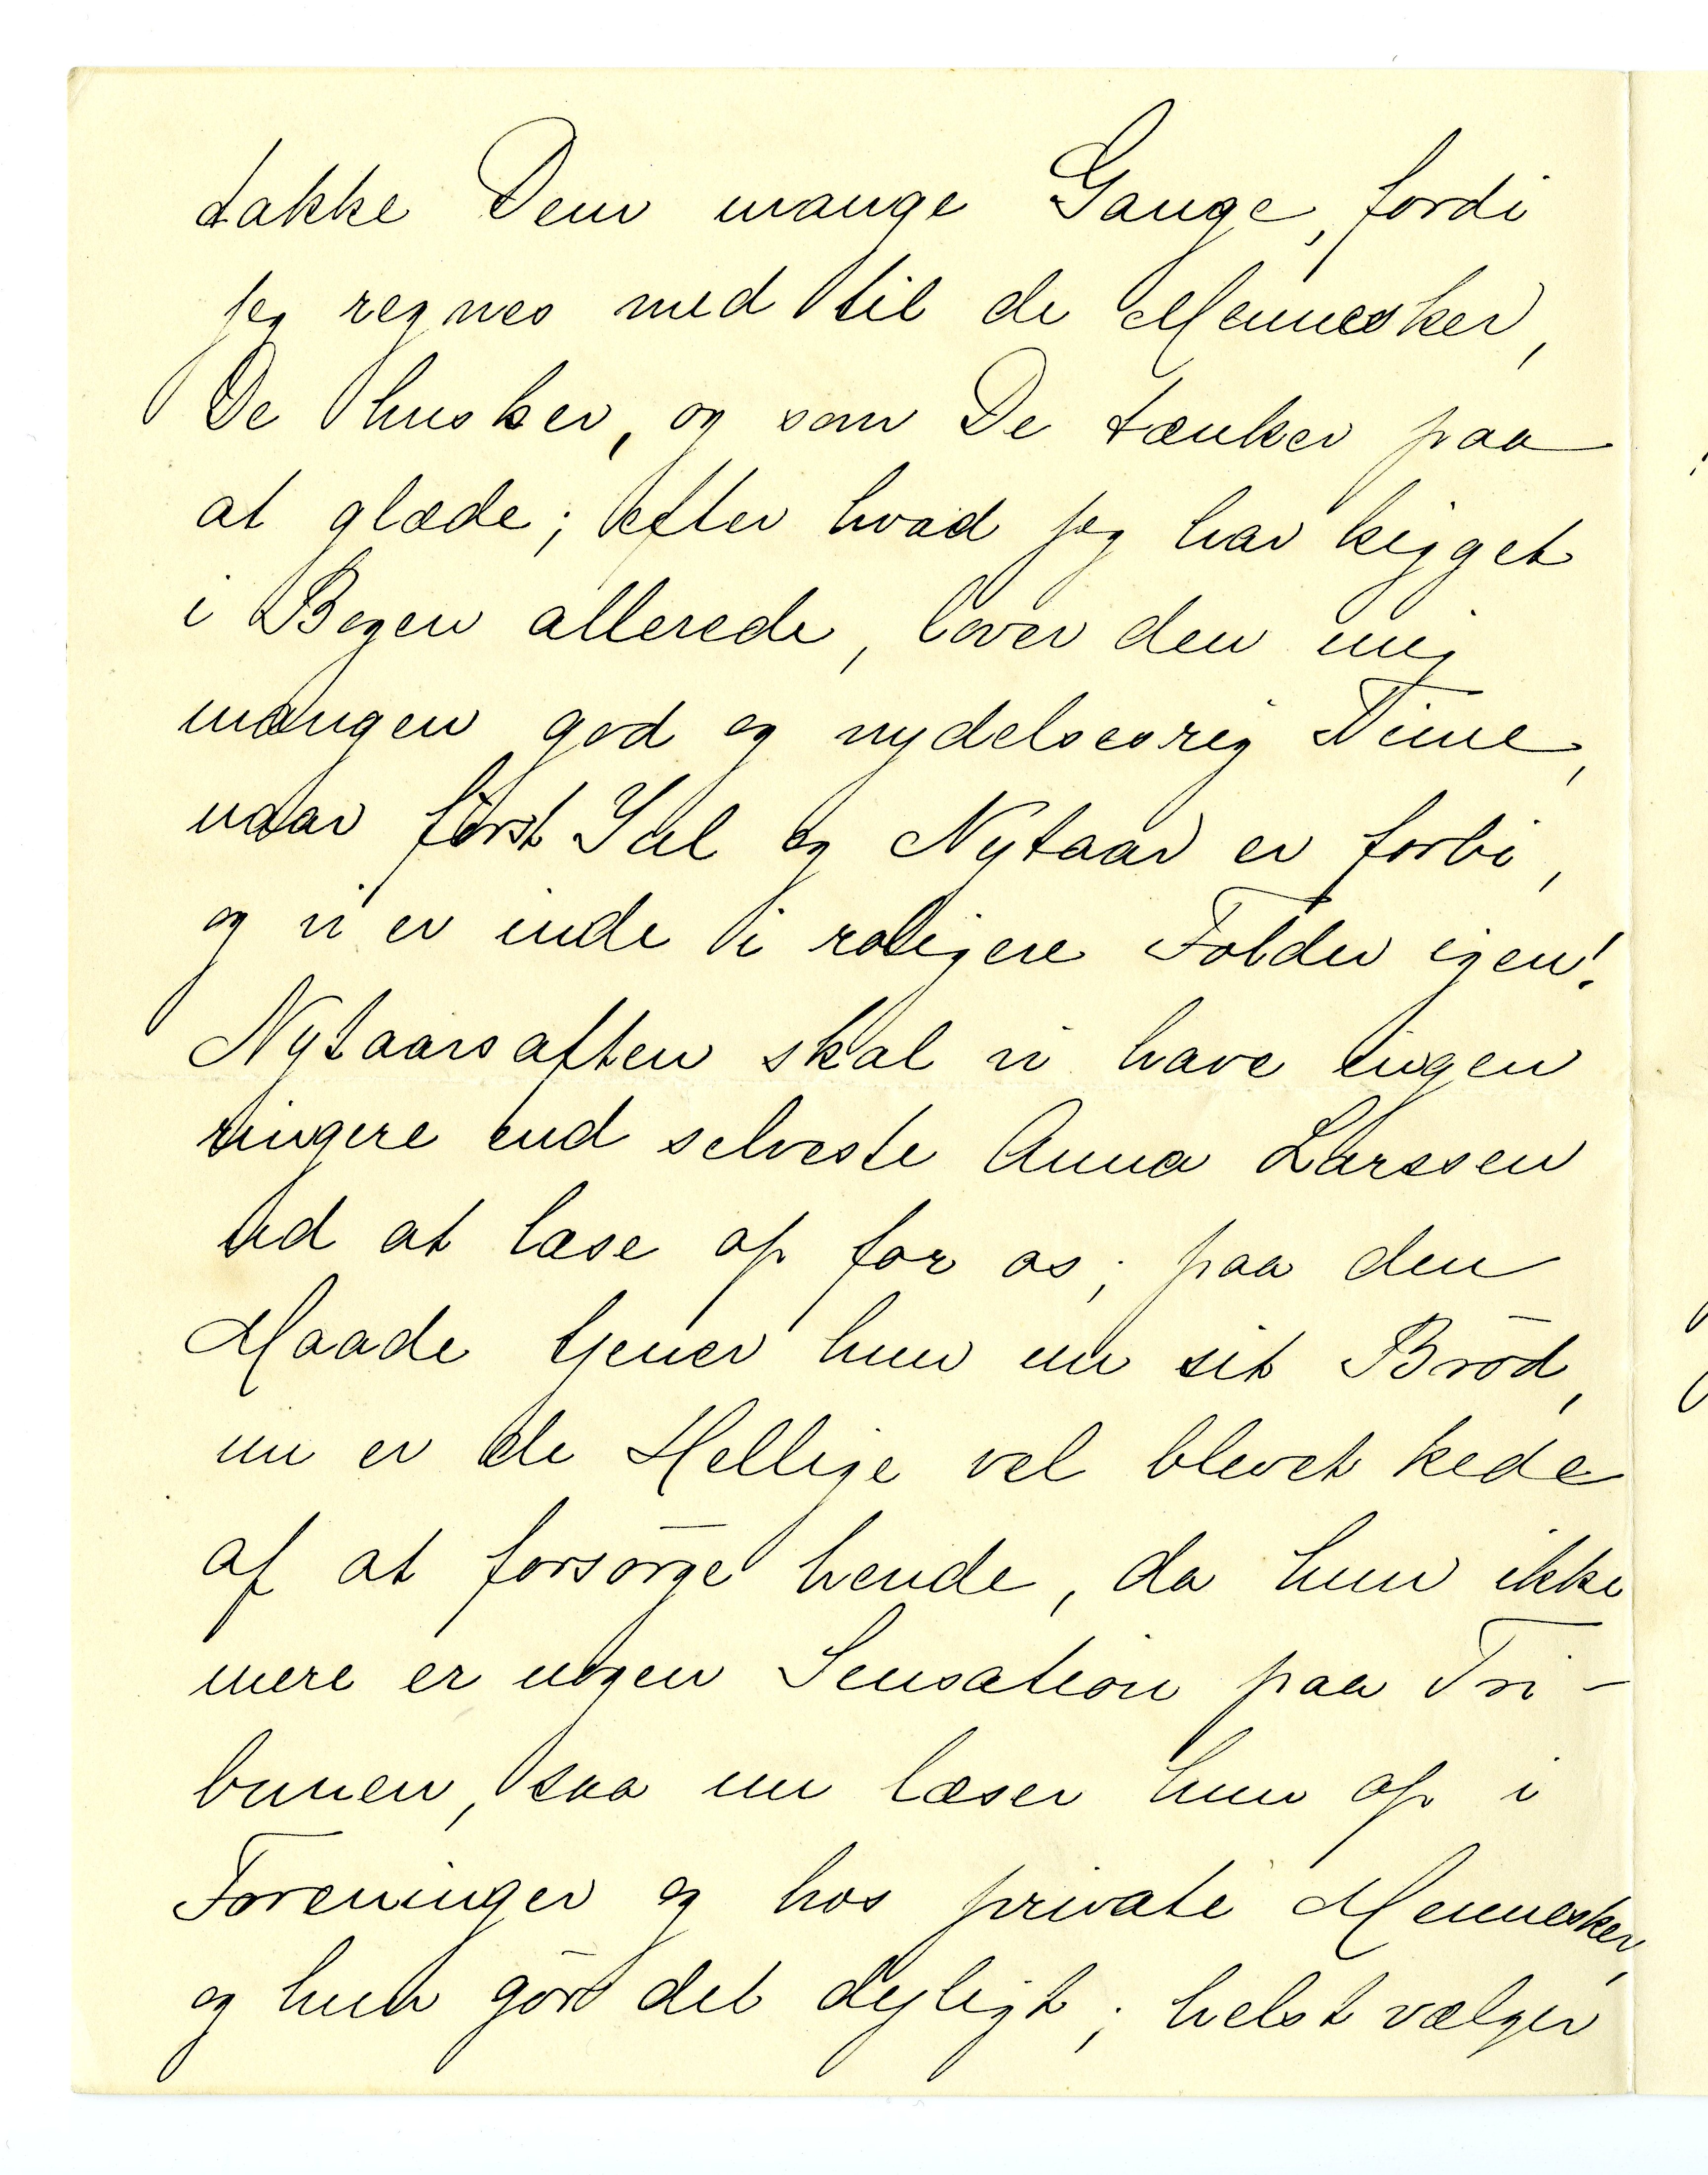 takke Dem mange Gange, fordi
jeg regnes med til de Mennesker,
De husker, og som De tænker paa
at glæde; efter hvad jeg har kigget
i Bogen allerede, lover den mig
mangen god og nydelsesrig Time,
naar först Jul og Nytaar er forbi,
og vi er inde i roligere Folder igen!
Nytaarsaften skal vi have ingen
ringere end selveste Anna Larssen
ud at læse op for os; paa den
Maade tjener hun nu sit Bröd,
nu er de Hellige vel blevet kede
af at forsörge hende, da hun ikke
mere er nogen Sensation paa Tri-
bunen, saa nu læser hun op i
Foreninger og hos private Mennesker,
og hun gör det dejligt; helst vælger